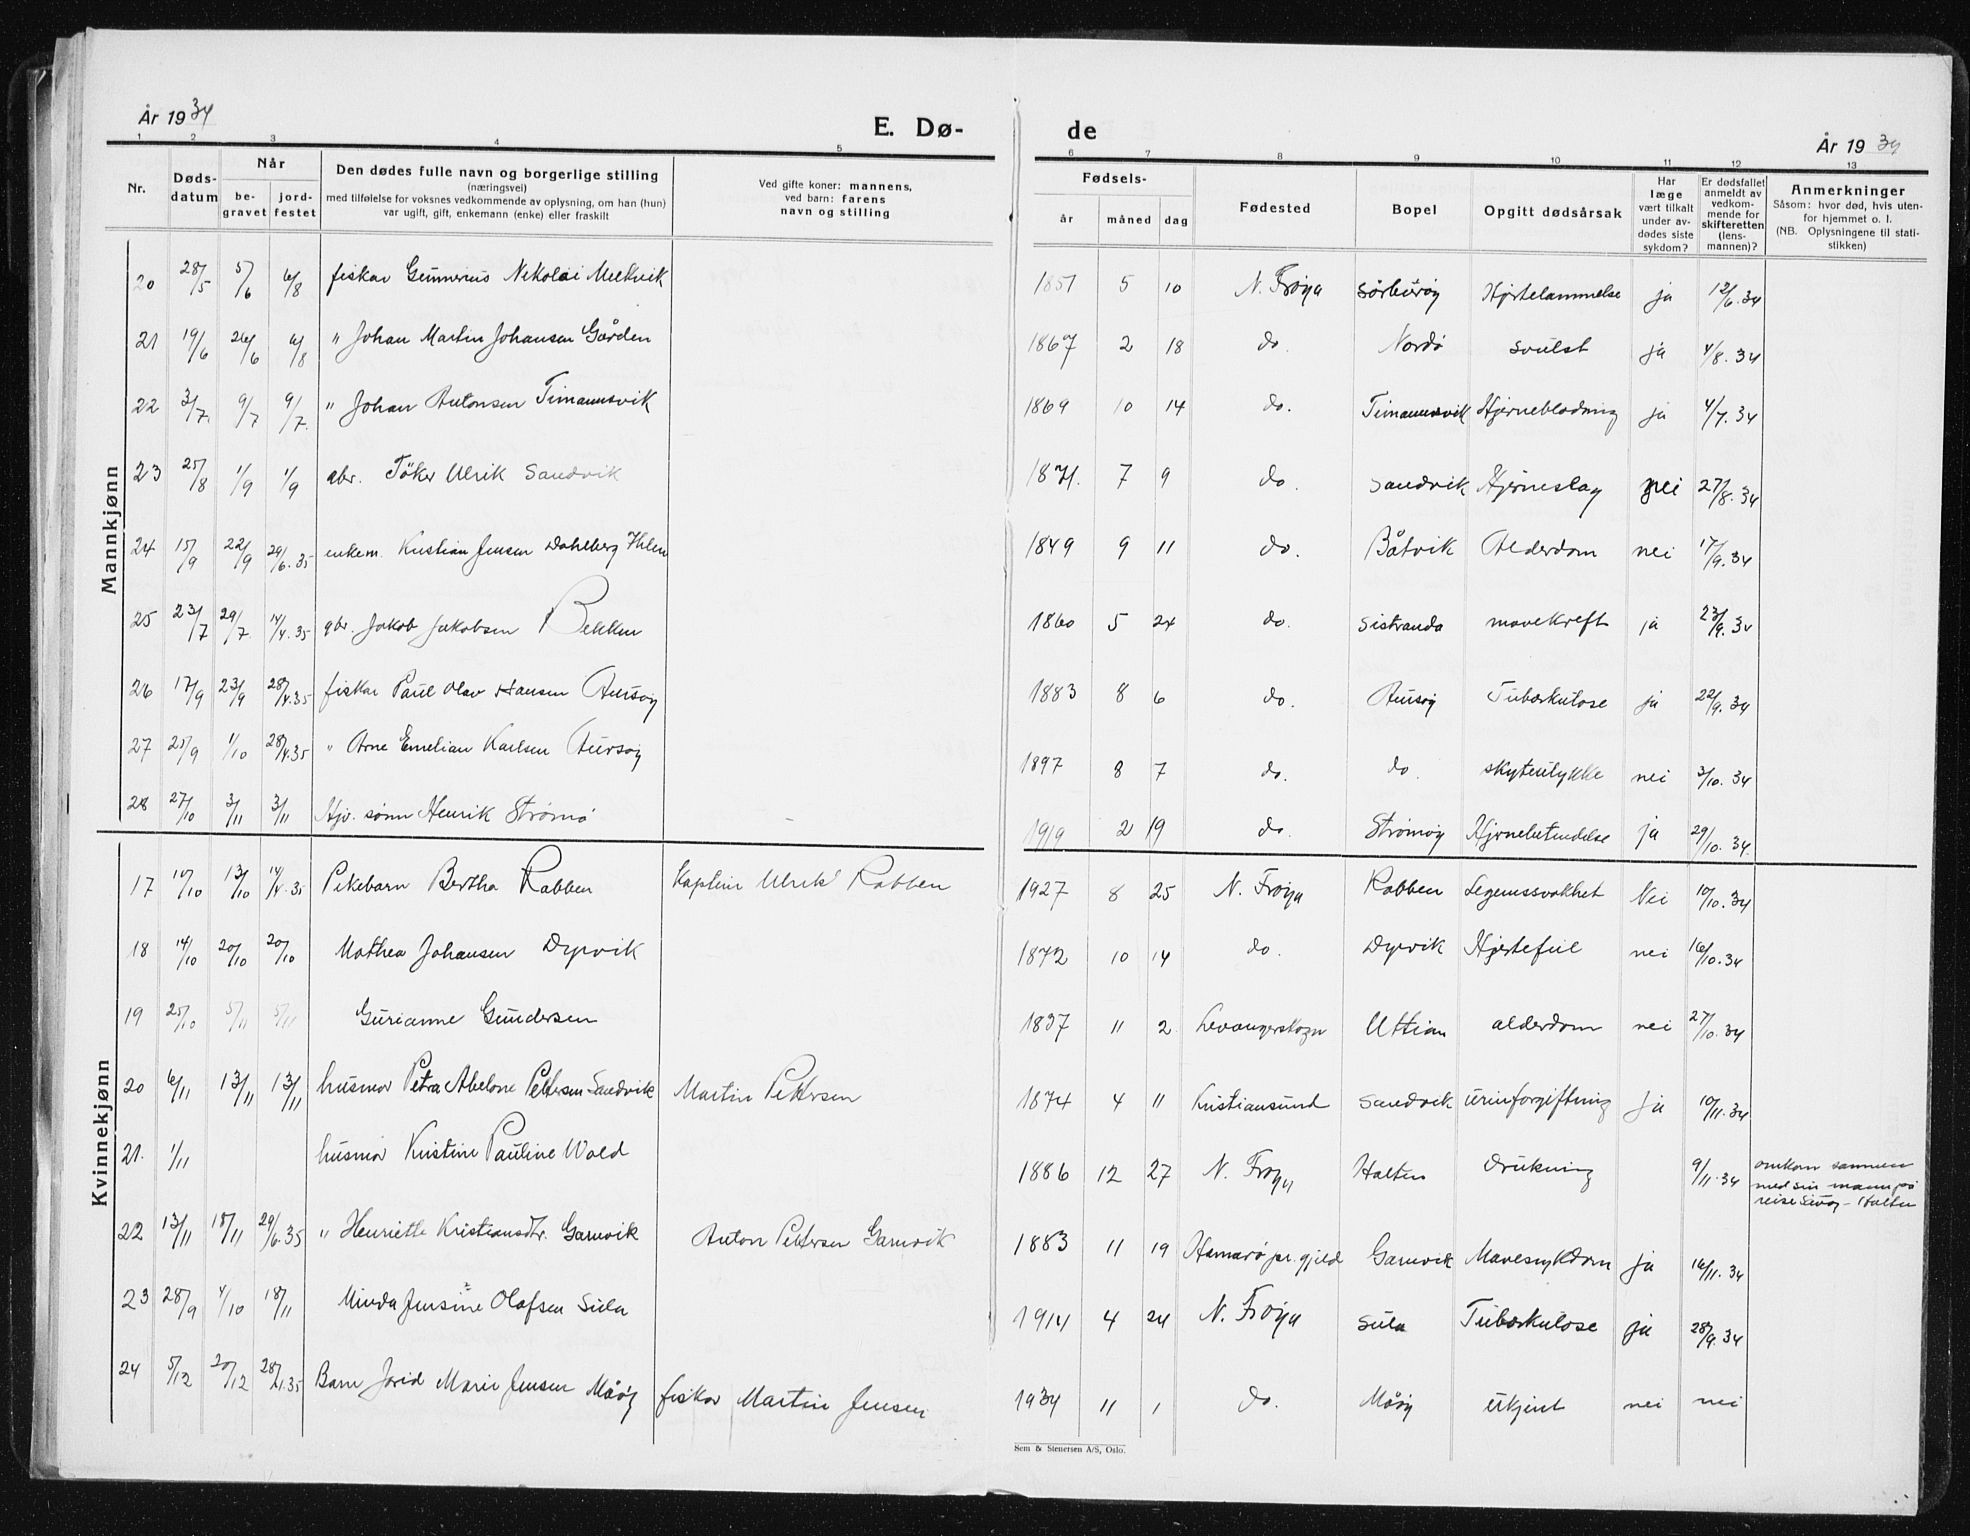 År 1934
E. Dø-
1 2 3 4 5
Nr.
Døds-
datum
Når
be-
gravet
jord-
festet
Den dødes fulle navn og borgerlige stilling
(næringsvei)
med tilføielse for voksnes vedkommende av oplysning, om han (hun)
var ugift, gift, enkemann (enke) eller fraskilt
Ved gifte koner: mannens,
ved barn: farens
navn og stilling
Mannkjønn
20 28/5 5/6 6/8 fiskar Gunnerius Nikolai Melkvik
21 19/6 26/6 6/8 " Johan Martin Johansen Gården
22 3/7. 9/7 9/7. " Johan Antonsen Timannsvik
23 25/8 1/9 1/9 gbr. Töker Ulrik Sandvik
24 15/9 22/9 29/6.35 enkem. Kristian Jensen Dahlberg Ihlen
25 23/7 29/7. 14/4.35 gbr. Jakob Jakobsen Bekken
26 17/9 23/9 28/4.35 fiskar Paul Olav Hansen Aursøy
27 25/9 1/10 28/4.35 " Arne Emelian Karlsen Aursøy
28 27/10 3/11 3/11 Hjv. sønn Henrik Strømø
Kvinnekjønn
17 10/10 13/10 14/4.35 Pikebarn Bertha Rabben Kaptein Ulrik Rabben
18 14/10 20/10 20/10 Mathea Johansen Dyrvik
19 25/10 5/11 5/11 Gurianne Gundersen
20 6/11 13/11 13/11 husmor Petra Abelone Pettersen Sandvik Martin Pettersen
21. 1/11 husmor Kristine Pauline Wold
22 13/11 18/11 29/6.35 " Henriette Kristiansdtr. Garnvik Anton Pettersen Garnvik
23 28/9 4/10 18/11 Minda Jensine Olafsen Sula
24 5/12 20/12 28/1.35 Barn Jorid Marie Jensen Måøy fiskar Martin Jensen
de
År 1934
6 7 8 9 10 11 12 13
Fødsels-
år
måned
dag
Fødested
Bopel
Opgitt dødsårsak
Har
læge
vært tilkalt
under av-
dødes siste
sykdom?
Er dødsfallet
anmeldt av
vedkom-
mende for
skifteretten
(lens-
mannen)?
Anmerkninger
Såsom: hvor død, hvis uten-
for hjemmet o. l.
(NB. Oplysningene til stati-
stikken)
1851 5 10 N. Frøya Sørburøy Hjertelammelse ja 12/6.34
1867 2 18 do. Nordø svulst ja 4/8.34
1869 10 14 do. Timannsvik Hjerneblødning ja 4/7.34
1871. 7 9 do. Sandvik Hjerneslag nei 27/8.34
1849 9 11 do. Båtvik Alderdom nei 17/9.34
1860 5 24 do. Sistranda mavekreft ja 23/9.34
1883 8 6 do. Aursøy Tuberkulose ja 22/9.34
1897 8 7 do. do. skyteulykke nei 3/10.34
1919 2 19 do. Strømøy Hjernebetendelse ja 29/10.34
1927 8 25 N. Frøya Rabben Legemssvakhet Nei 10/10.34
1872 10 14 do. Dyrvik Hjertefeil nei 16/10.34
1837 11 2 Levangerskogn Uttian alderdom nei 27/10.34
1874 4 11 Kristiansund Sandvik urinforgiftning ja 10/11.34
1886 12 27 N. Frøya Halten Drukning 9/11.34 omkom sammen
med sin mann på
reise - Halten
1883 11 19 Hamarø pr.gjeld Garnvik Mavesykdom ja 16/11.34
1914 4 24 N. Frøya Sula Tuberkulose ja 28/9.34
1934 11 1 do. Måøy ukjent nei nei
Sem & Stenersen A/S, Oslo.